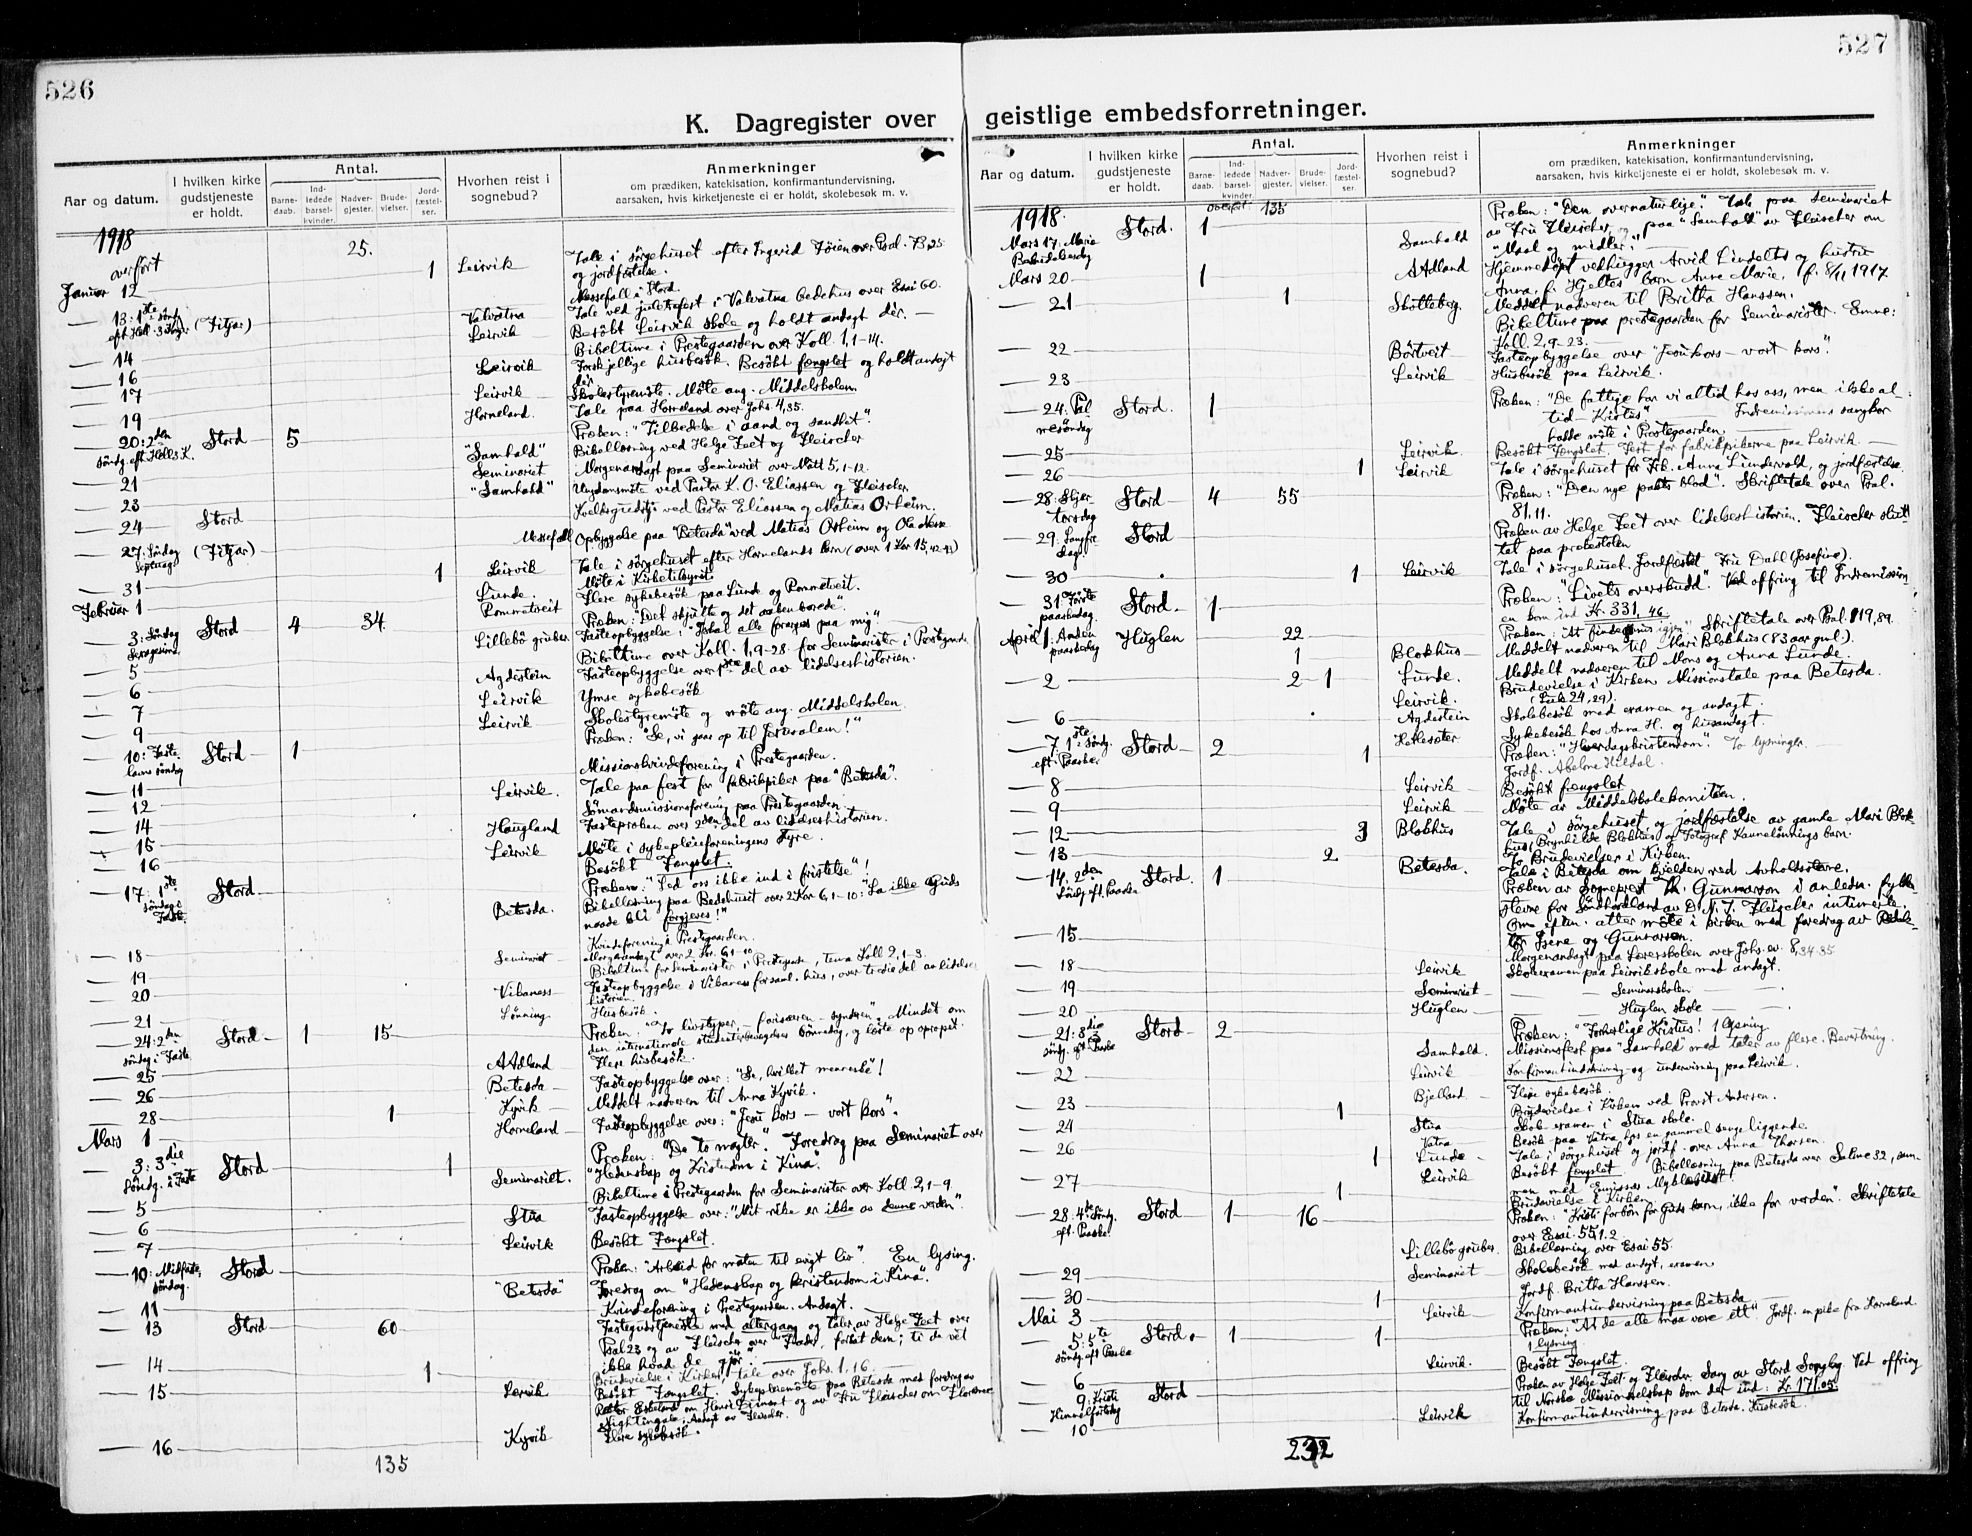 526
K. Dagregister over
Aar og datum.
I hvilken kirke gudstjeneste er holdt.
Antal.
Barne-daab.
Ind-ledede barsel-kvinder
Nadver-gjester.
Brude-vielser.
Jord-fæstel-ser.
Hvorhen reist i sognebud?
Anmerkninger
om prædiken, katekisation, konfirmantundervisning,
aarsaken, hvis kirketjeneste ei er holdt, skolebesøk m. v.
1918
overført 25.
Januar 12 1 Leirvik Tale i sørgehuset efter Ingerid over Psal. 73,25
og jordfæstelse.
Messefall i Stord.
13: 1ste sønd. eft. Hell. 3 Kgr (Fitjar) Valvatna Tale ved juletrefest i Valvatna bedehus over Esai 60.
14 Leirvik Besøkt Leirvik skole og holdt andagt dér.
16 Bibeltime i Prestegaarden over Koll. 1,1-14.
17 Leirvik Forskjellige husbesøk. Besøkt fængslet og holdt andagt
dér
Leirvik Skolestyremøte. Møte ang. Middelskolen.
19 Horneland. Tale paa Horneland over Johs. 4,35.
20: 2den søndg. eft. Hell 3 K. Stord 5 Præken: "Tilbedelse i aand og sandhet".
"Samhald" Bibellæsning ved Helge Feet og Fleischer
21 Seminariet Morgenandagt paa Seminariet over Matt 5,1-12.
23 "Samhald" Ungdomsmøte ved Pastor K. O. Eliassen og Fleischer
24 Stord Kveldsgudstj. ved Pastor Eliassen og Matias Orheim.
27: Søndag Septuag. (Fitjar) Messefall Opbyggelse paa "Betesda" ved Matias Orheim og Ola Nesse
31 1 Leirvik Tale i sørgehuset efter Hornelands barn (over 1 Kor 15,42-43)
Møte i Kirketilsynet.
Februar 1 Lunde. Flere sykebesøk paa Lunde og Rommetveit.
Rommetveit
3: Søndag Sexagesima Stord 4 34 Præken: "Det skjulte og det aabenbarede".
Lillebø gruber Fasteopbyggelse: "I skal alle forarges paa mig".
5 Bibeltime over Koll. 1,9-28 for Seminarister i Prestegaarden
6 Agdestein Fasteopbyggelse over 1ste del av lidelseshistorien.
7 Leirvik Ymse sykebesøk
9 Leirvik Skolestyremøte og møte ang. Middelskolen.
10: Fastelavns søndag Stord 1 Præken: "Se, vi gaar op til Jerusalem!"
11 Missionskvindeforening i Prestegaarden.
12 Leirvik. Tale paa fest for fabrikpiker paa "Betesda".
14 Sømandsmissionsforening paa Prestegaarden.
15 Haugland Fastepræken over 2den del av lidelseshistorien.
16 Leirvik Møte i sykepleieforeningens styre.
Besøkt Fængslet.
17: 1ste søndag i Faste. Stord Præken: "Led oss ikke ind i fristelse"!
Betesda. Bibellæsning paa Bedehuset over 2 Kor 6,1-10: "La ikke Guds
naade bli forgjeves!"
18 Kvindeforening i Prestegaarden.
19 Seminariet Morgenandagt over 2 Kor. 6,1-10.
20 Bibeltime for Seminarister i Prestegaarden, tema Koll 2,1-3.
21 Vikaness Fasteopbyggelse i Vikaness forsaml. hus, over tredie del av lidelses
historien.
Lønning Husbesøk.
24: 2den søndag i Faste Stord 1 15 Præken: "To livstyper, - fariseeren - synderen". Mindet om
den internationale studenterbevægelses bønnedag, og læste op opropet.
25 Aadland Flere husbesøk.
26 Betesda Fasteopbyggelse over: "Se, hvilket menneske"!
28 1 Kyvik Meddelt nadveren til Anna Kyvik.
Mars 1 Horneland Fasteopbyggelse over: "Jesu kors - vort kors".
3: 3die Søndg. i Faste Stord 1 Præken: "De to magter". Foredrag paa Seminariet over
Seminariet. "Hedenskap og Kristendom i Kina".
5 Bibeltime i Prestegaarden for Seminarister over Koll. 2,1-9.
6 Stua Fasteopbyggelse over: "Mit rike er ikke av denne verden".
7 Leirvik Besøkt Fængslet.
10: Midfaste søndag. Stord Præken: "Arbeid for maten til evigt liv". En lysing.
"Betesda" Foredrag om "Hedenskap og kristendom i Kina".
11 Kvindeforening i Prestegaarden. Andagt.
13 Stord 60 Fastegudstjeneste med altergang og taler av Helge Feet over
Psal 23 og av Fleischer over "Fader, forlat dem; ti de vet
ikke hvad de gjør".
14 1 Brudevielse i Kirken, tale over Johs. 1.16.
15 Leirvik Besøkt Fængslet. Sykepleiemøte paa Betesda med foredrag av
Eskeland om Henri Dunant og av Fru Fleischer om Florence
Nightingale; Andagt av Fleischer.
16 Kyvik Flere sykebesøk.
135
527
geistlige embedsforretninger.
Aar og datum.
I hvilken kirke gudstjeneste er holdt.
Antal.
Barne-daab.
Ind-ledede barsel-kvinder
Nadver-gjester.
Brude-vielser.
Jord-fæstel-ser.
Hvorhen reist i sognebud?
Anmerkninger
om prædiken, katekisation, konfirmantundervisning,
aarsaken, hvis kirketjeneste ei er holdt, skolebesøk m. v.
1918. overført: 135
Mars 17: Maria Bebudelsesdg Stord. 1 Præken: "Den overnaturlige". Tale paa Seminariet
Samhald av Fru Fleischer, og paa "Samhald" av Fleischer om
"Maal og midler".
Mars 20 1 Aadland Hjemmedøpt vedhugger Arvid Lindelts og hustru
Anna f. Hjeltes barn Anne Marie, f. 8/11 1917.
21 1 Skotteberg. Meddelt nadveren til Britha Hanssen.
Bibeltime paa prestegaarden for Seminarister. Emne:
Koll. 2,9-23.
22 Børtveit Fasteopbyggelse over "Jesu kors - vort kors".
23 Leirvik Husbesøk paa Leirvik.
24: Palmesøndag Stord. 1 Præken: "De fattige har vi altid hos oss, men ikke al-
tid Kristus" Indremissionens sangkor
hadde møte i Prestegaarden.
25 Leirvik. Besøkt Fængslet. Fest for fabrikpikerne paa Leirvik.
26 1 Leirvik Tale i sørgehuset for Frk. Anna Lundervold, og jordfæstelse.
28: Skjærtorsdag Stord 4 55 Præken: "Den nye pakts blod". Skriftetale over Psal.
81,11.
29: Langfredag Stord Præken av Helge Feet over lidelseshistorien. Fleischer slut-
tet paa prækestolen
30 1 Leirvik Tale i sørgehuset. Jordfæstet Fru Dahl (Josefine).
31: Første paaskedag. Stord. 1 Præken: "Livets overskudd". Ved offring til Indremission
en kom ind Kr. 331,46.
April 1: Anden paaskedag Huglen 22 Præken: At finde igjen. Skriftetale over Psal. 119,89.
1 Blokhus Meddelt nadveren til Mari Blokhus (83 aar gml).
2 2 1 Lunde. Meddelt nadveren til Mons og Anna Lunde.
Leirvik. Brudevielse i Kirken. Missionstale paa Betesda.
(Luk 24,29).
6 Agdestein Skolebesøk med examen og andagt.
Hetlesæter Sykebesøk hos Anna H. og husandagt.
7: 1ste Søndg. eft. Paaske Stord 2 1 Præken: "Hverdagskristendom". To lysninger.
Jordf. Abelone Hildal.
8 Leirvik Besøkt fængslet
9 Leirvik Møte av Middelskolekomiteen.
12 3 Blokhus Tale i sørgehuset og jordfæstelse av gamle Mari Blok-
hus, Brynhilde Blokhus og Fotograf Kannelønnings barn.
13 2 To Brudevielser i Kirken.
14: 2den Søndg. eft. Paaske Stord. 1 Betesda. Tale i Betesda om kvelden ved Avholdsstevne.
Præken av Sogneprest Th. Gunnarson i anledn. fylkes
stevne for Søndhordland av D. N. T. Fleischer intimerte.
Om eftm. atter møte i kirken med foredrag av Redak-
tør Isene og Gunnarson.
15 Morgenandagt paa Lærerskolen over Johs. ev. 8,34-35
18 Leirvik Skoleexamen paa Leirvikskole med andagt.
19 Seminariet Seminarskolen
20 Huglen Huglen skole
21: 3die søndg. eft Paaske Stord 2 Præken: "Forherlige Kristus! 1 lysning
Samhald. Missionsfest paa "Samhald" med taler av flere. Bevertning.
22 Leirvik Konfirmantindskrivning og undervisning paa Leirvik.
Bjelland Flere sykebesøk.
23 1 Brudevielse i Kirken ved Provst Andersen.
24 Stua Skoleexamen i Stua skole.
Vatna Besøk paa Vatna hos en gammel sengeliggende.
26 1 Lunde Tale i sørgehuset og jordf. over Anna Thorsen.
27 Leirvik Besøkt fængslet. Bibellæsning paa Betesda over Salme 32, sam-
men med Emissær Myklebust.
1 Brudevielse i Kirken.
28: 4de Søndg. eft. Paaske. Stord 1 16 Præken: "Kristi forbøn for Guds barn, ikke for verden". Skriftetale
over Esai. 55,1.2
Lillebø gruber. Bibellæsning over Esai 55.
29 Seminariet Skolebesøk med andagt, examen
30 1 Jordf. Britha Hanssen.
Mai 3 Leirvik Konfirmantundervisning paa Betesda
5: 5te søndg. eft Paaske Stord. 1 1 Præken: "At de alle maa være ett". Jordf. en pike fra Horneland.
1 lysning.
6 Leirvik. Besøkt Fængslet.
9: Kristi Himmelfartsdag Stord Præken av Helge Feet og Fleischer. Sang av Stord Songlag. Ved offring
til Norske Missionsselskap kom der ind: Kr. 171.05.
10 Leirvik Konfirmantundervisning paa Betesda. Husbesøk.
232